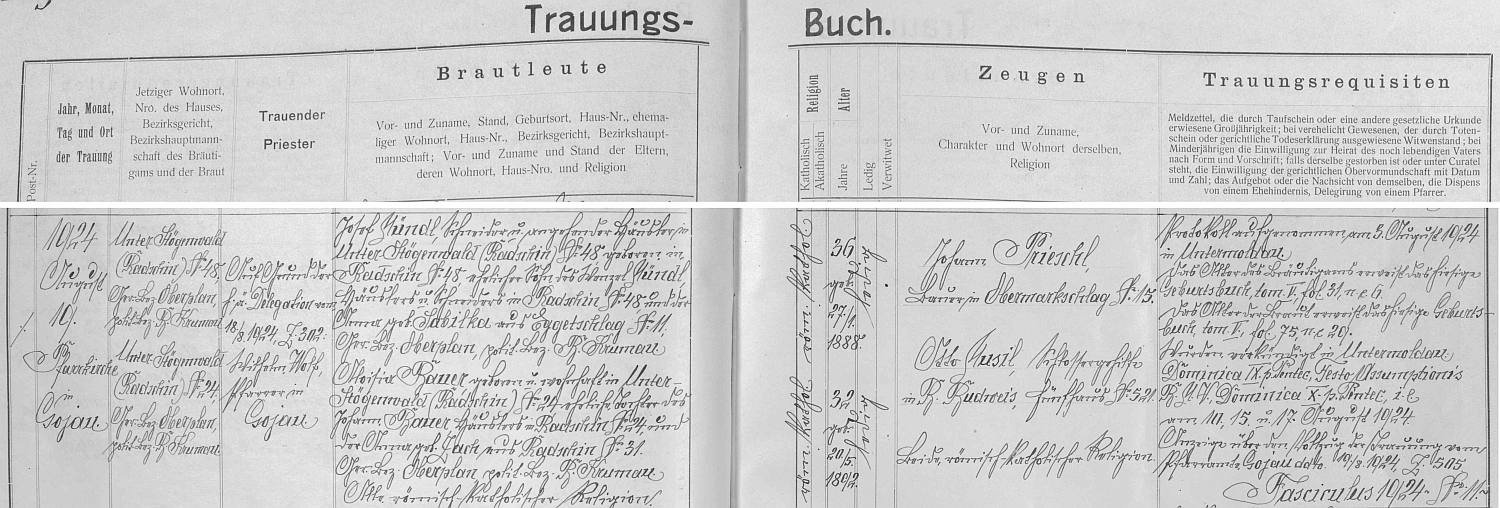 Trauungs-
Buch.
Post-Nr.
Jahr, Monat,
Tag und Ort
der Trauung
Jetziger Wohnort,
Nro. des Hauses,
Bezirksgericht,
Bezirkshauptmann-
schaft des Bräuti-
gams und der Braut
Trauender
Priester
Brautleute
Vor- und Zuname, Stand, Geburtsort, Haus-Nr., ehema-
liger Wohnort, Haus-Nr., Bezirksgericht, Bezirkshaupt-
mannschaft; Vor- und Zuname und Stand der Eltern,
deren Wohnort, Haus-Nro. und Religion
Katholisch
Akatholisch
Religion
Jahre
Alter
Ledig
Verwitwet
Zeugen
Vor- und Zuname,
Charakter und Wohnort derselben,
Religion
Trauungsrequisiten
Meldzettel, die durch Taufschein oder eine andere gesetzliche Urkunde
erwiesene Großjährigkeit; bei verehelicht Gewesenen, der durch Toten-
schein oder gerichtliche Todeserklärung ausgewiesene Witwenstand; bei
Minderjährigen die Einwilligung zur Heirat des noch lebendigen Vaters
nach Form und Vorschrift; falls derselbe gestorben ist oder unter Curatel
steht, die Einwilligung der gerichtlichen Obervormundschaft mit Datum
und Zahl; das Aufgebot oder die Nachsicht von demselben, die Dispens
von einem Ehehindernis, Delegirung von einem Pfarrer.
1924
August
19.
Pfarrkirche
in
Gojau
Unter Stögenwald
(Radschin) No 48,
Ger. Bez. Oberplan,
polit. Bez. B. Krumau
Unter Stögenwald
(Radschin) No 24,
Ger. Bez. Oberplan,
polit. Bez. B. Krumau
Auf Grund der
h. ä. Delegation vom
18/8 1924, Z. 302.
Wilhelm Wolf,
Pfarrer in
Gojau
Josef Zündl, Schneider u. angehender Häusler in
Unter Stögenwald (Radschin) No 48 geboren in
Radschin No 48 ehelicher Sohn des Wenzel Zündl
Häuslers u. Schneiders in Radschin No 48 und der
Anna geb. Sabitka aus Eggetschlag, No 11,
Ger. Bez. Oberplan, polit. Bez. B. Krumau
Aloisia Bauer geboren u. wohnhaft in Unter-
Stögenwald (Radschin) No 24 eheliche Tochter des
Johann Bauer Häuslers in Radschin No 24 und
der Anna geb. Pach aus Radschin No 31.
Ger. Bez. Oberplan polit. Bez. B. Krumau
Alle römisch-katholischer Religion.
römisch katholisch
36
geb.
27/1.
1888.
ledig
römisch katholisch
32
geb.
20/5.
1892.
ledig
Johann Prieschl,
Bauer in Obermarkschlag No 15.
Otto Kusil,
in B. Budweis, Fünfhaus No 521
Beide römisch katholischer Religion.
Protokoll aufgenommen am 3. August 1924
in Untermoldau
Das Alter des Bräutigams erweist das hiesige
Geburtsbuch, tom V. fol. 31, n. e. 6.
Das Alter der Braut erweist das hiesige Geburts-
buch, tom V, fol. 75, n. e. 20.
Wurden verkündigt in Untermoldau
Dominica IX. p. Pentec, Festo Assumptionis
B. M. V. Dominica X. p. Pentec, i. e.
am 10., 15. u. 17. August 1924.
Anzeige über den Vollzug der Trauung vom
Pfarramte Gojau ddto. 19/8. 1924, Z. 505
Fasciculus 1924 - No 11.